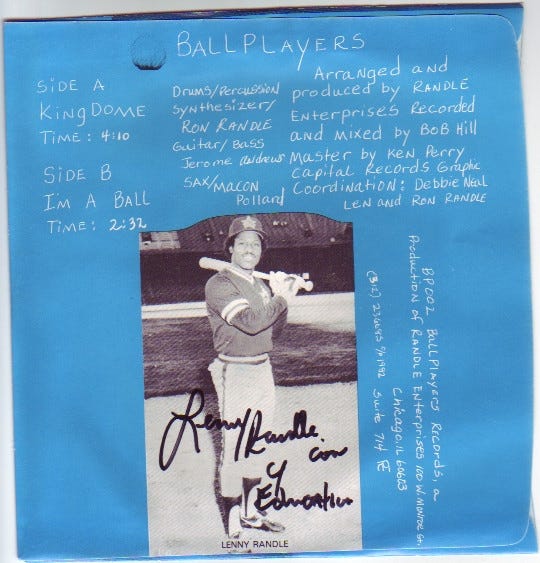 BALLPLAYERS
SIDE A
KINGDOME
TIME: 4:10
SIDE B
I'M A BALL
TIME: 2:32
Drums/Percussion
Synthesizer/
RON RANDLE
Guitar/Bass
Jerome Andrews
SAX/MACON
Pollard
Arranged and
produced by RANDLE
Enterprises Recorded
and mixed by BOB Hill
Master by Ken Perry
Capital Records Graphic
Coordination: Debbie Neal
LEN and RON RANDLE
BP002 BALLPLAYERS RECORDS, a
Production of RANDLE Enterprises 100 W. MONROE St.
Chicago, IL 60603
(312) Suite 714
Lenny Randle.com
Edmonton
LENNY RANDLE